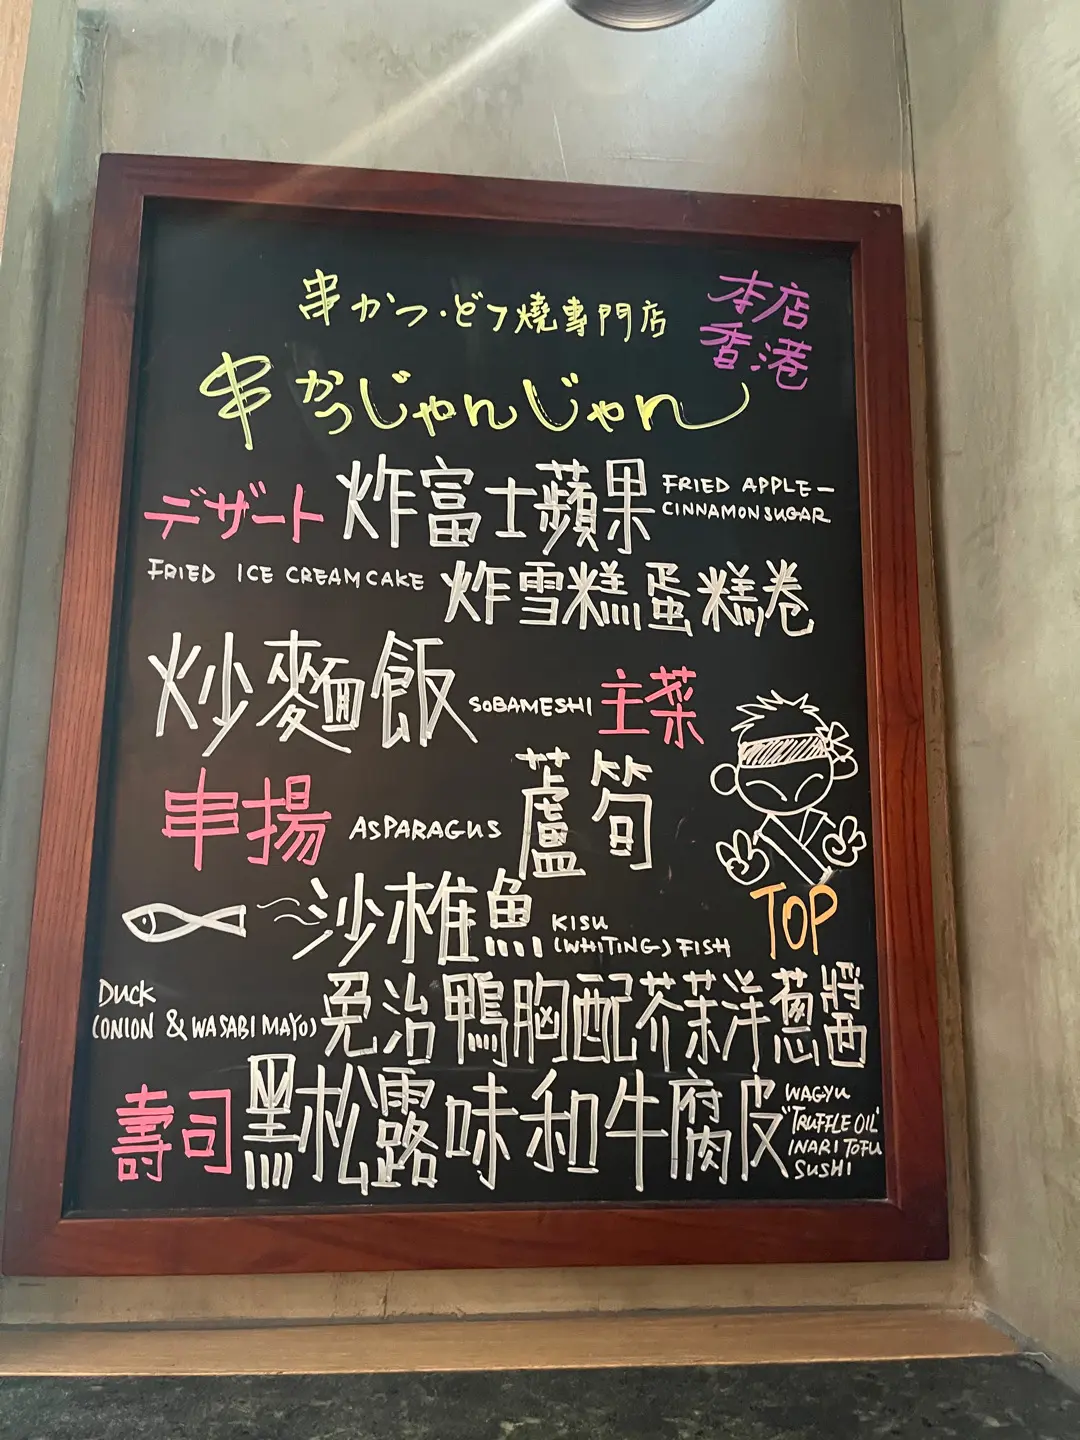 串かつ・どて燒專門店
本店
香港
串かつじゃんじゃん
デザート 炸富士蘋果 FRIED APPLE-
CINNAMON SUGAR
FRIED ICE CREAM CAKE 炸雪糕蛋糕卷
炒麵飯 SOBAMESHI 主菜
串揚 ASPARAGUS 蘆筍
沙椎魚 KISU
(WHITING) FISH
TOP
DUCK
(ONION & WASABI MAYO) 免治鴨胸配芥茉洋蔥醬
壽司 黑松露味和牛腐皮 WAGYU
"TRUFFLE OIL"
INARI TOFU
SUSHI